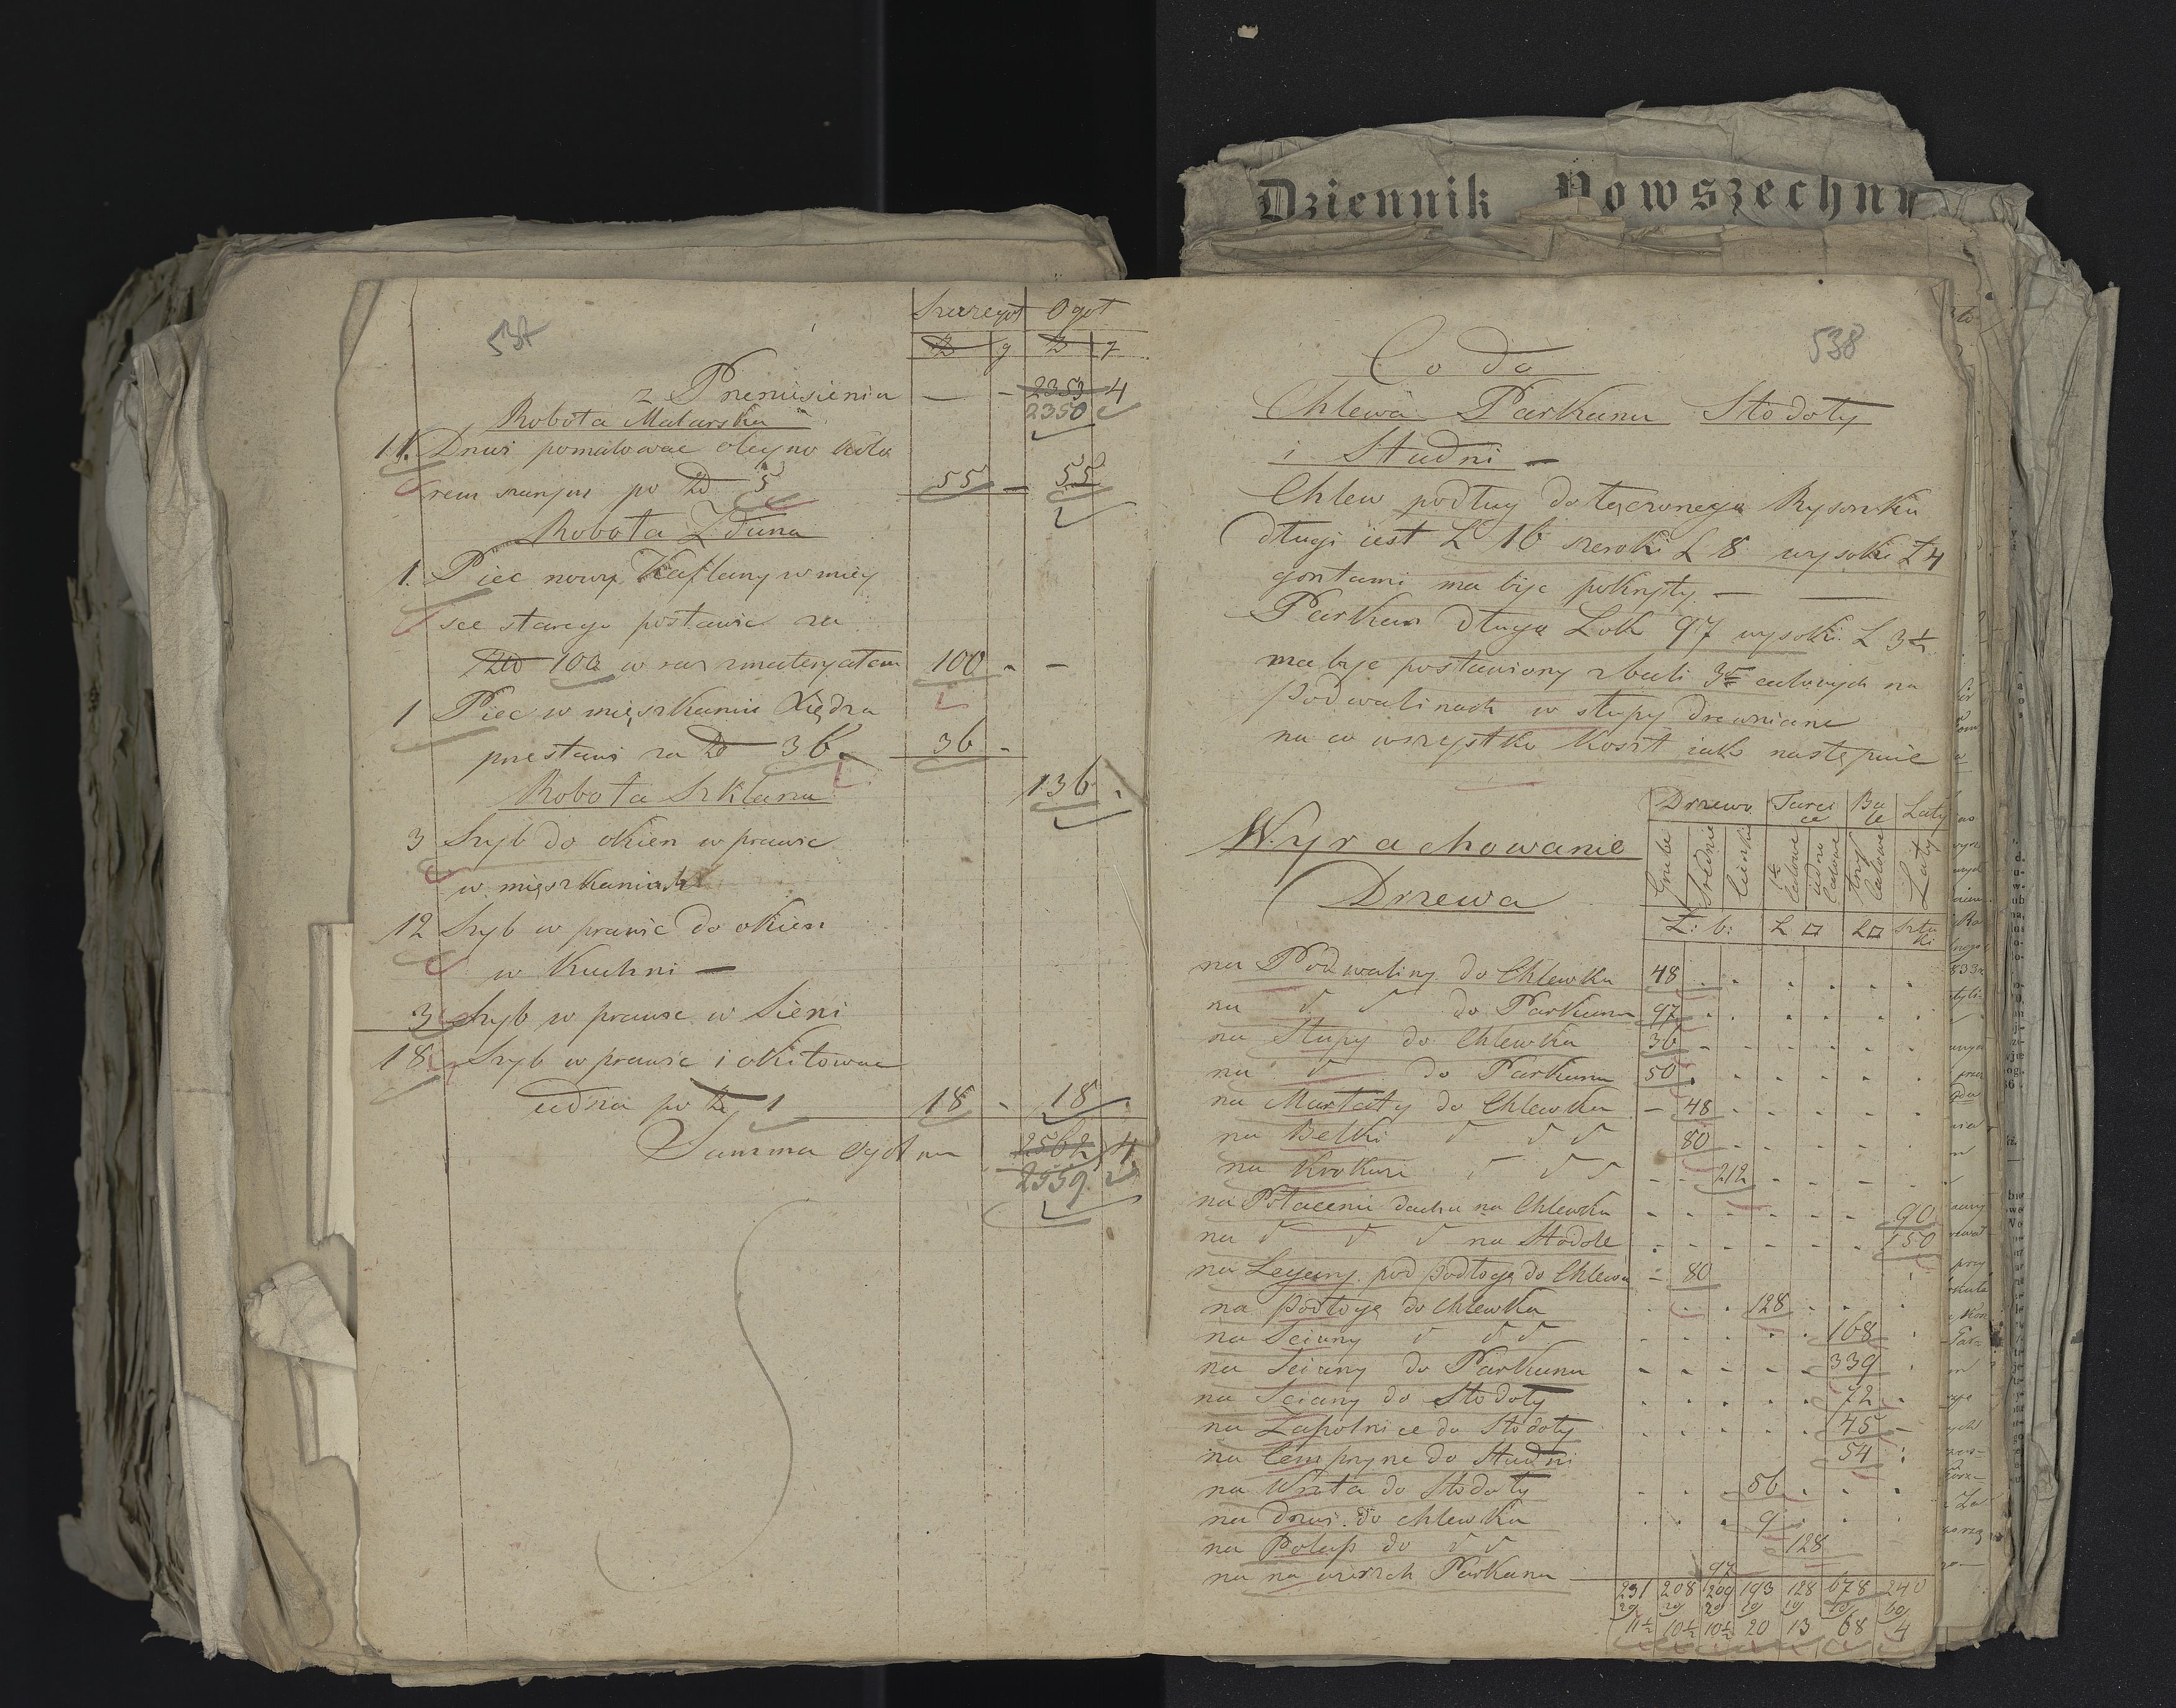 Dziennik Powszechny
537
Szczegół Ogół
zł g zł g
z Przeniesienia — - 2353 4
2350
Robota Malarska
11. Drzwi pomalować olejno kolo
rem szarym po zł 5 55 — 55
Robota Zduna
1. Piec nowy Kaflany w miey
sce starego postawić za
zł 100 w raz zmateryałem 100 - —
1 Piec w mięszkaniu Xiędza
przestawi za zł 36. 36 -
136 .
Robota Szklarza
3 Szyb do okien w prawić
w mięszkaniach
12 Szyb w prawić do okien
w Kuchni —
3 Szyb w prawić w Sieni
18 Szyb w prawić i okitować
po zł 1 18 - 18 .
Summa ogólna 2562 4
2559
538
Co do
Chlewa Parkanu Stodoły
i Studni —
Chlew podług dołączonego Rysonku
długi iest Ł 16 szeroki Ł 8 wysoki Ł 4
gontami ma byc pokryty. —
Parkan długa Łok 97 wysoki Ł 3½
ma byc postawiony z bali 3 calowych na
podwalinach w słupy drewniane
na co wszystko koszt iak następuie
Drzewo Tarci ce Ba le Łaty
Wyrachowanie
Drzewa
Grube Srednie Cienkie calowe calowe trzy calowe Łaty
Ł: b: Ł □ Ł □ Sztu ki
na Podwaliny do Chlewka 48
na √ √ do Parkanu 97
na Słupy do Chlewka 36
na √ do Parkanu 50
na Murłaty do Chlewka - 48
na Belki √ √ √ 80
na Krokwi √ √ √ - - 212
na Połacenie dachu na Chlewku 90
na √ √ √ na Stodole 150
na Legary pod podłogę do Chlewa - 80
na podłogę do Chlewka 128
na Sciany √ √ √ 168
na Sciany do Parkanu 339
na Sciany do Stodoły 72
na Zapolnice do Stodoły 45
na Cempryne do Studni 54
na Wrota do Stodoły 56
na drzwi do chlewka 9
na Pułap do √ √ 128
na na wierzch Parkanu 97
231 208 209 193 128 678 240
20 20 20 10 10 10 60
11½ 10½ 10½ 20 13 68 4